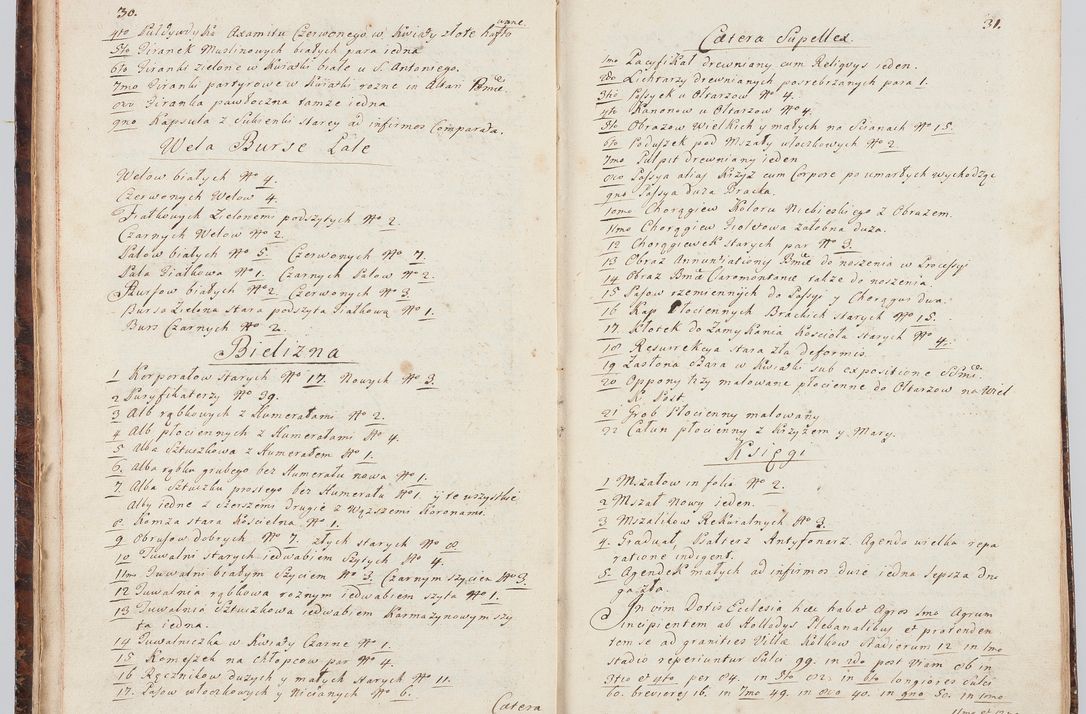 30.
4to Baldywdyko Axamitu Czerwonego w Kwiaty złote hafto
wane.
5to Firanek Muslinowych białych para iedna
6to Firanki zielone w Kwiatki białe u S. Antoniego.
7mo Firanki partyrowe w Kwiatki rozne in Altari
8vo Firanka pawłoczna tamże iedna
9no Kapsuła z Sukienki starey ad infirmos Comparda.
Wela Burse Pale
Welow białych No 4.
Czerwonych Welow 4.
Fiałkowych Zielonemi podszytych No 2.
Czarnych Welow No 2.
Palow białych No 5. Czerwonych No 7.
Pala Fiałkowa No 1. Czarnych Palow No 2.
Bursow białych No 2. Czerwonych No 3.
Bursa Zielona stara podszyta Fiałkową No 1.
Burs Czarnych No 2.
Bielizna
1 Korporałow starych No 17. Nowych No 3.
2 Puryfikaterzy No 39.
3 Alb rąbkowych z Humerałami No 2.
4 Alb płociennych z Humerałami No 4.
5 Alba Sztuczkowa z Humerałem No 1.
6. Alba rąbku grubego bez Humerału nowa No 1.
7. Alba Sztuczku prostego bez Humerału No 1. y te wszystkie
Alby iedne z Szerszemi Drugie z Węzszemi Koronami.
8. Komża stara Koscielna No 1.
9 Obrusow dobrych No 7. złych starych No 8
10 Tuwalni starych iedwabiem Szytych No 4.
11mo Tuwalni białym Szyciem No 3. Czarnym szyciem No 3.
12 Tuwalnia rąbkowa roznym iedwabiem szyta No 1.
13 Tuwalnia Sztuczkowa iedwabiem Karmazynowym szy
ta iedna.
14 Tuwalniczka w Kwiaty Czarne No 1.
15 Komeszek na chłopcow par No 4.
16 Ręcznikow dużych y małych Starych No 11.
17. Pasow włoczkowych y Nicianych No 6.
Cætera
31.
Cætera Supellex
1mo Pacyfikał drewniany cum Reliquys ieden.
2do Lichtarzy drewnianych posrebrzanych para 1.
3tio Passyek u Ołtarzow No 4.
4to Kanonow u Ołtarzow No 4.
5to Obrazow Wielkich y małych na Scianach No 15.
6to Poduszek pod Mszały włoczkowych No 2.
7mo Pulpit drewniany ieden
8vo Passya alias Krzyż cum Corpore po umarłych wychodząc
9no Passya duża Bracka.
10mo Chorągiew Koloru Niebieskiego z Obrazem.
11mo Chorągiew Fioletowa żałobna duża.
12 Chorągiewek starych par No 3.
13 Obraz Annuntiationy Bmæ do noszenia w Processyi
14 Obraz Bmæ Claromontane także do noszenia.
15 Pasow rzemiennych do Passyi y Chorągwi dwa.
16 Kap Płociennych Brackich starych No 15.
17. Kłotek do Zamykania Koscioła starych No 4.
18 Resurrekcya stara zła deformis.
19 Zasłona szara w Kwiatki sub expositione SSmi.
20 Oppony trzy malowane płocienne do Ołtarzow na Wiel
ki Post.
21 Grob Płocienny malowany
22 Całun płocienny z Krzyżem y Mary.
Księgi
1 Mszałow in folio No 2.
2 Mszał Nowy ieden.
3 Mszalikow Rekwialnych No 3.
4. Graduał, Psałterz Antyfonarz. Agenda wielka repa
ratione indigent.
5. Agendek małych ad infirmos dwie iedna lepsza dru
ga zła.
In vim Dotis Ecclesia hæc habet Agros 1mo Agrum
incipientem ab Hallodys Plebanalibus et protenden
tem se ad granities Villæ Kałkow Stadiorum 12 in 1mo
stadio reperiuntur Sulci 99. in 2do post Viam 86 in
3tio et 4to per 84. in 5to 82. in 6to longiores Sulci
60. breviores 16. in 7mo 49. in 8vo 40. in 9no 50. in 1mo